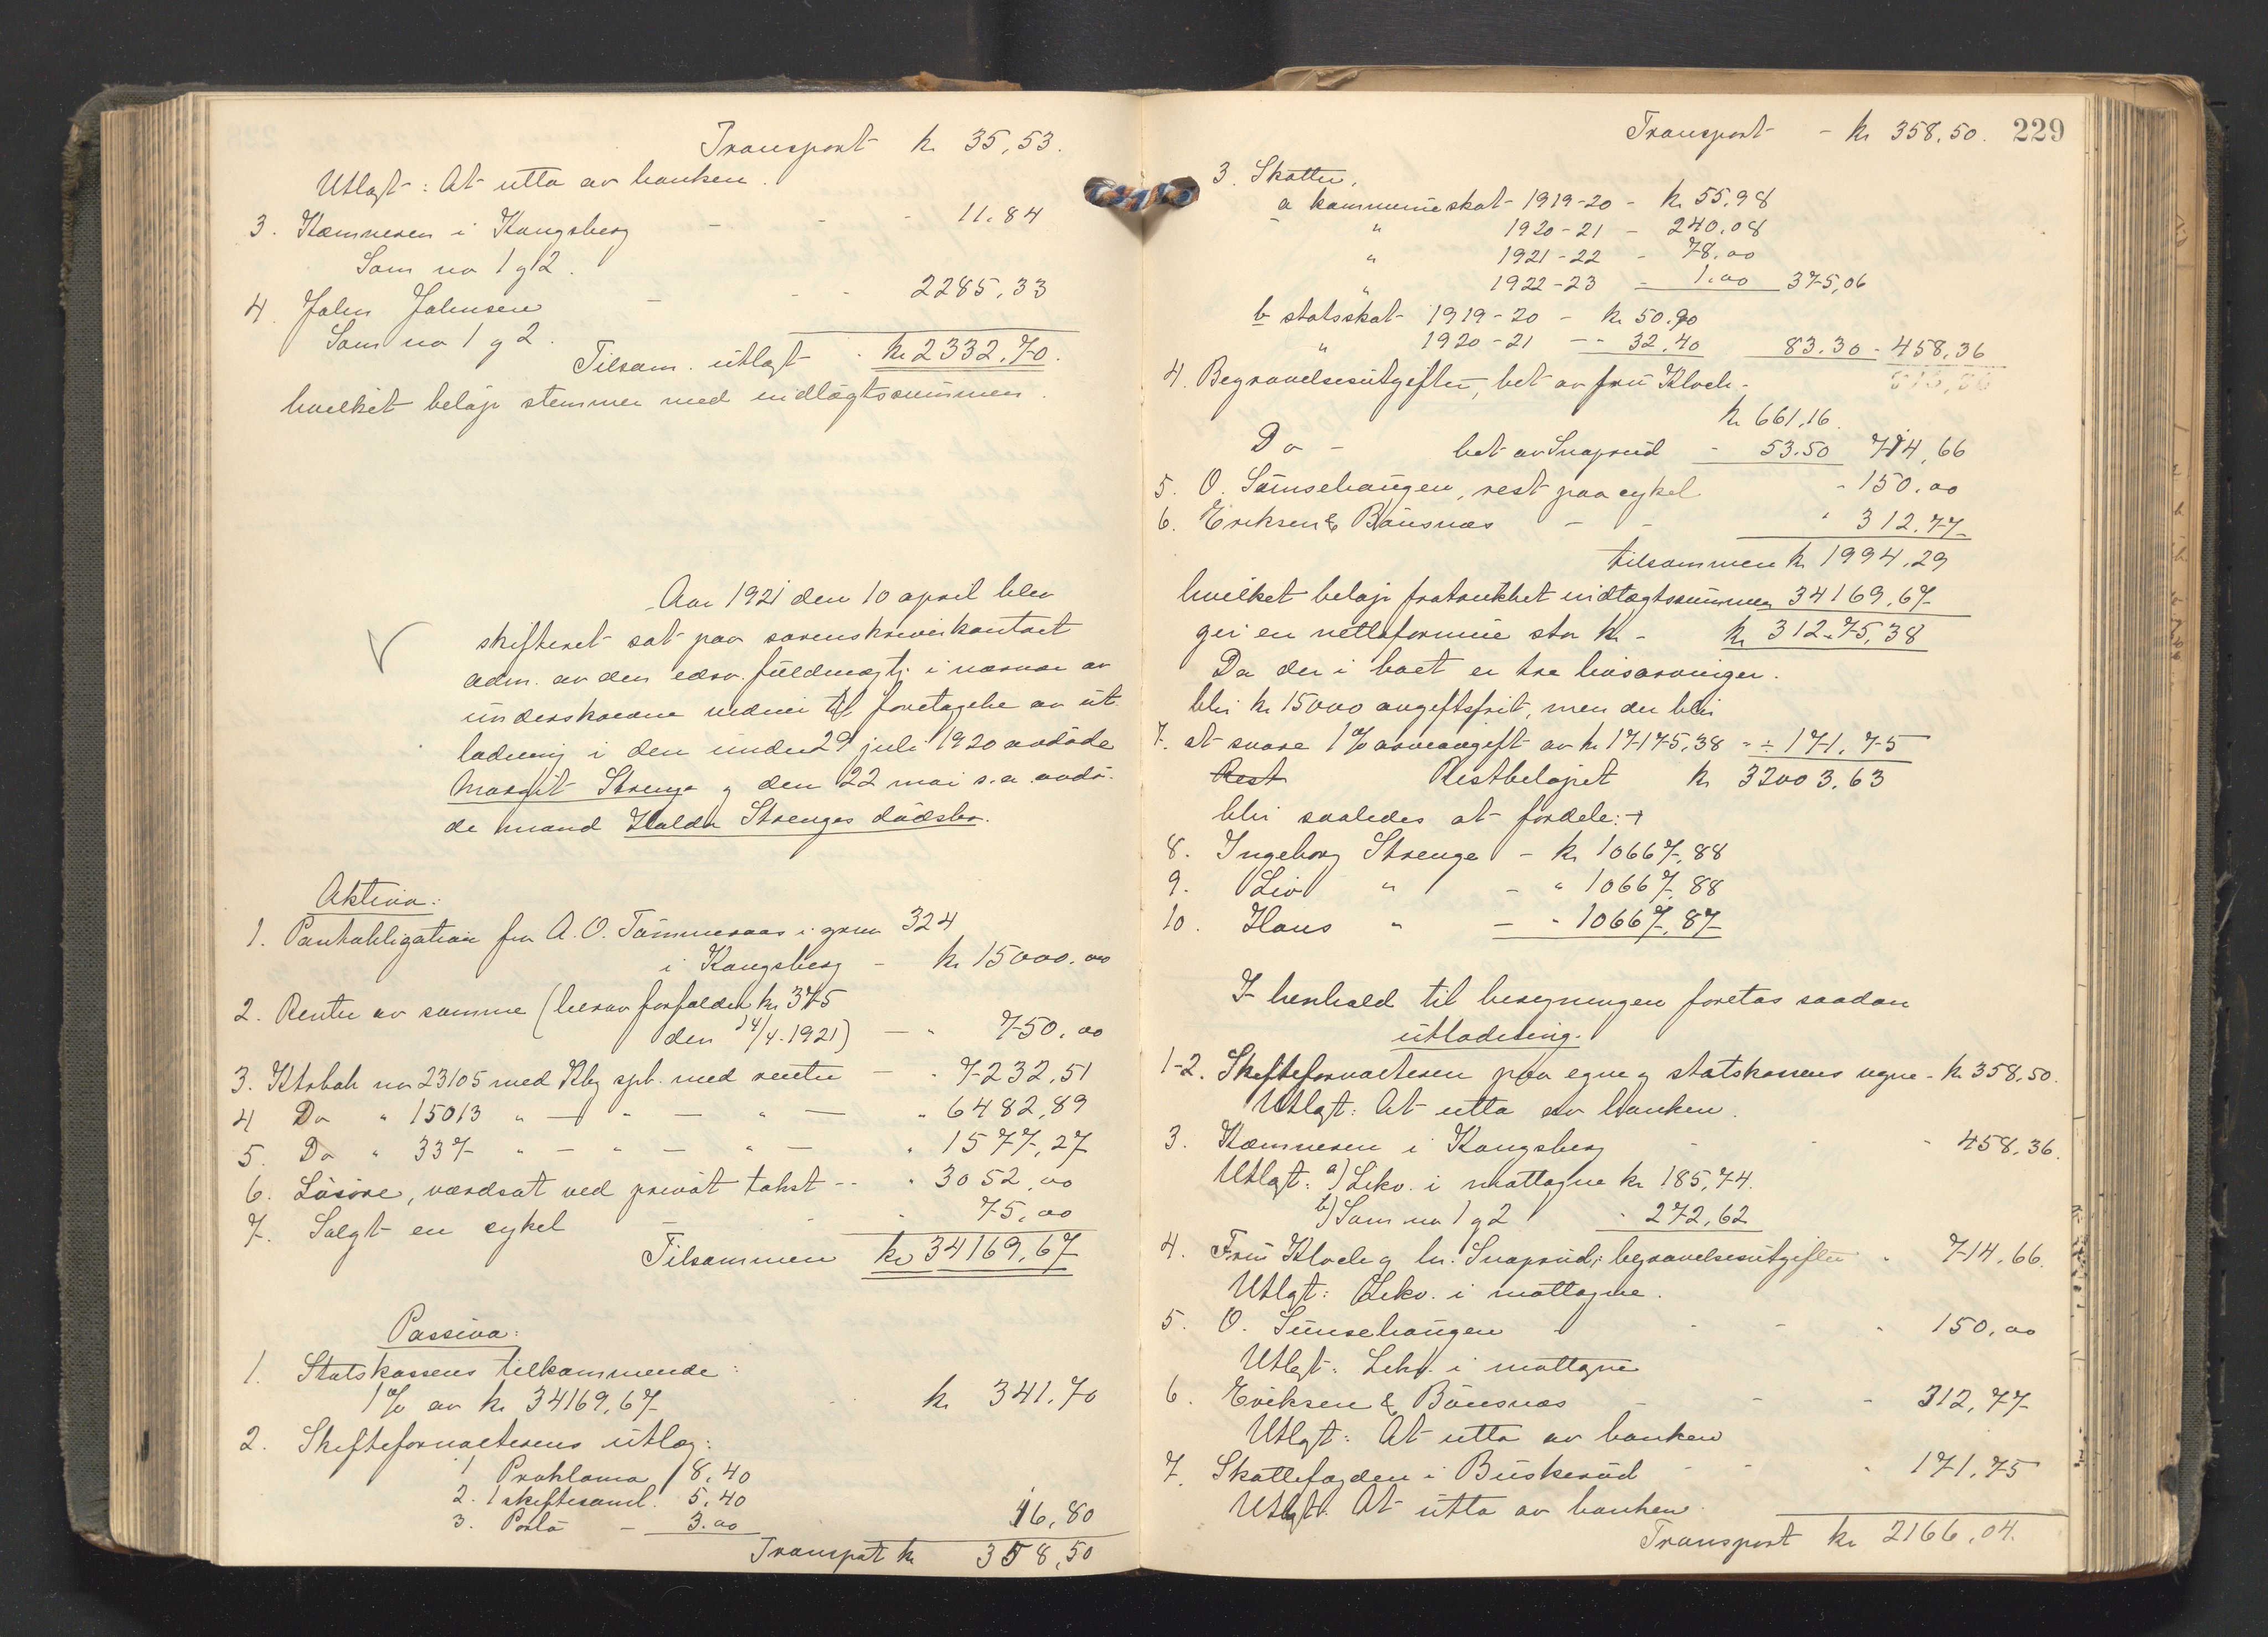 Transport kr 35,53.
Utlagt: At utta av banken.
3. Kæmneren i Kongsberg - - - 11.84
Som no 1 g 2.
4. John Johnsen - - - 2285,33
Som no 1 g 2.
Tilsam. utlagt - kr 2332,70.
hvilket beløp stemmer med indtægtssummen.
Aar 1921 den 10 april blev
skifteret sat paa sorenskriverkontoret
adm. av den edsv. fuldmægtig i nærvær av
underskrevne vidner til foretagelse av ut-
lodning i den under 29 juli 1920 avdøde
Margit Strenge g den 22 mai s.a. avdø-
de mand Haldor Strenges dødsbo.
Aktiva:
1. Pantobligation fra A. O. Tømmeraas i grun 324
i Kongsberg - kr 15000.00
2. Renter av samme (herav forfaldent kr. 375
den 14/4.1921) - " 750,00
3. Ktrbok no 23105 med Kbg spb. med renter - " 7232,51
4 Do " 15013 " - " - " - " 6482,89
5. Do " 337 " - " - " - " 1577,27
6. Løsøre, værdsat ved privat takst -- " 3052,00
7. Solgt en cykel - - " 75,00
Tilsammen kr 34169,67
Passiva:
1. Statskassens tilkommende:
1% av kr 34169,67 - kr 341.70
2. Skifteforvalterens utlæg:
1 Proklama 8,40
2. 1 skiftesaml. 5,40
3. Porto - 3.00 16,80
Transport kr 358,50
229
Transport - kr 358,50.
3. Skatter,
a kommuneskat 1919-20 - kr 55,98
" 1920-21 - 240.08
" 1921-22 - 78.00
" 1922-23 - 1.00 375,06
b statsskat 1919-20 - kr 50.90
" 1920-21 -- 32,40 83.30 - 458,36
4. Begravelsesutgifter, bet av fru Kloch -
kr 661,16.
Do - bet av Snaprud - 53.50 714,66
5. O. Sømsehaugen, rest paa cykel - 150.00
6. Eriksen & Bønsnæs - - " 312,77
tilsammen kr 1994,29
hvilket beløp fratrukket indtægtssummen 34169,67
gir en nettoformue stor kr - kr 312.75,38
Da der i boet er tre livsarvinger.
blir kr 15000 avgiftsfrit, men der blir
7. at svare 1% arveavgift av kr 17175,38 - ÷ 171,75
Rest Restbeløpet kr 32003,63
blir saaledes at fordele:+
8. Ingeborg Strenge - kr 10667,88
9. Liv " - " 10667,88
10. Hans " - " 10667,87
I henhold til beregningen foretas saadan
utlodning.
1-2. Skifteforvalteren paa egne g statskassens vegne - kr 358,50.
Utlagt: At utta av banken.
3. Kæmneren i Kongsberg - - " 458,36.
Utlagt: a) Likv. i mottagne kr 185,74.
b) Som no 1 g 2 " 272,62
4. Fru Kloch g hr. Snaprud, begravelsesutgifter " 714.66.
Utlagt: Likv. i mottagne.
5. O. Sømsehaugen - - " 150,00
Utlagt: Likv. i mottagne
6. Eriksen & Bønsnæs - - - 312,77
Utlagt: At utta av banken
7. Skattefogden i Buskerud - - " 171,75
Utlagt: At utta av banken.
Transport kr 2166,04.